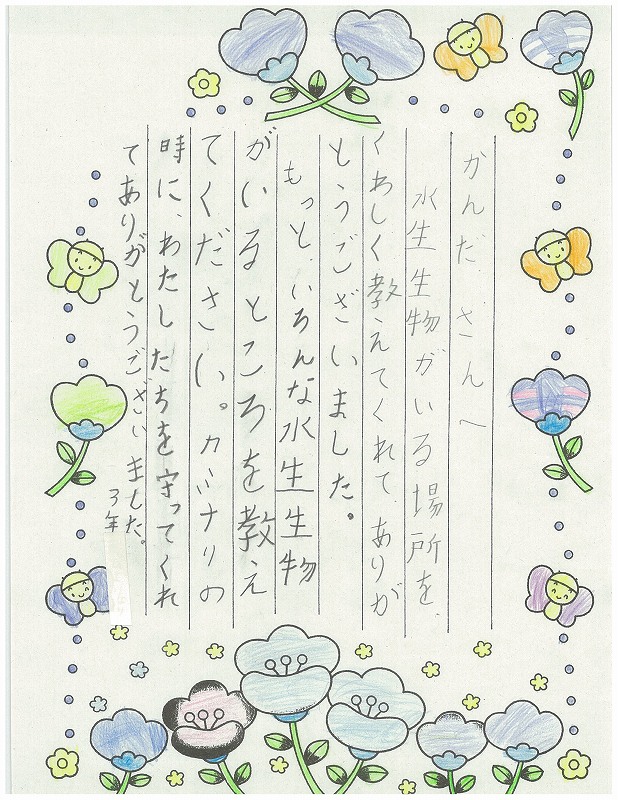 かんださんへ
水生生物がいる場所を、
くわしく教えてくれて、ありが
とうございました。
もっと、いろんな水生生物
がいるところを教え
てください。カミナリの
時に、わたしたちを守ってくれ
てありがとうございました。
3年